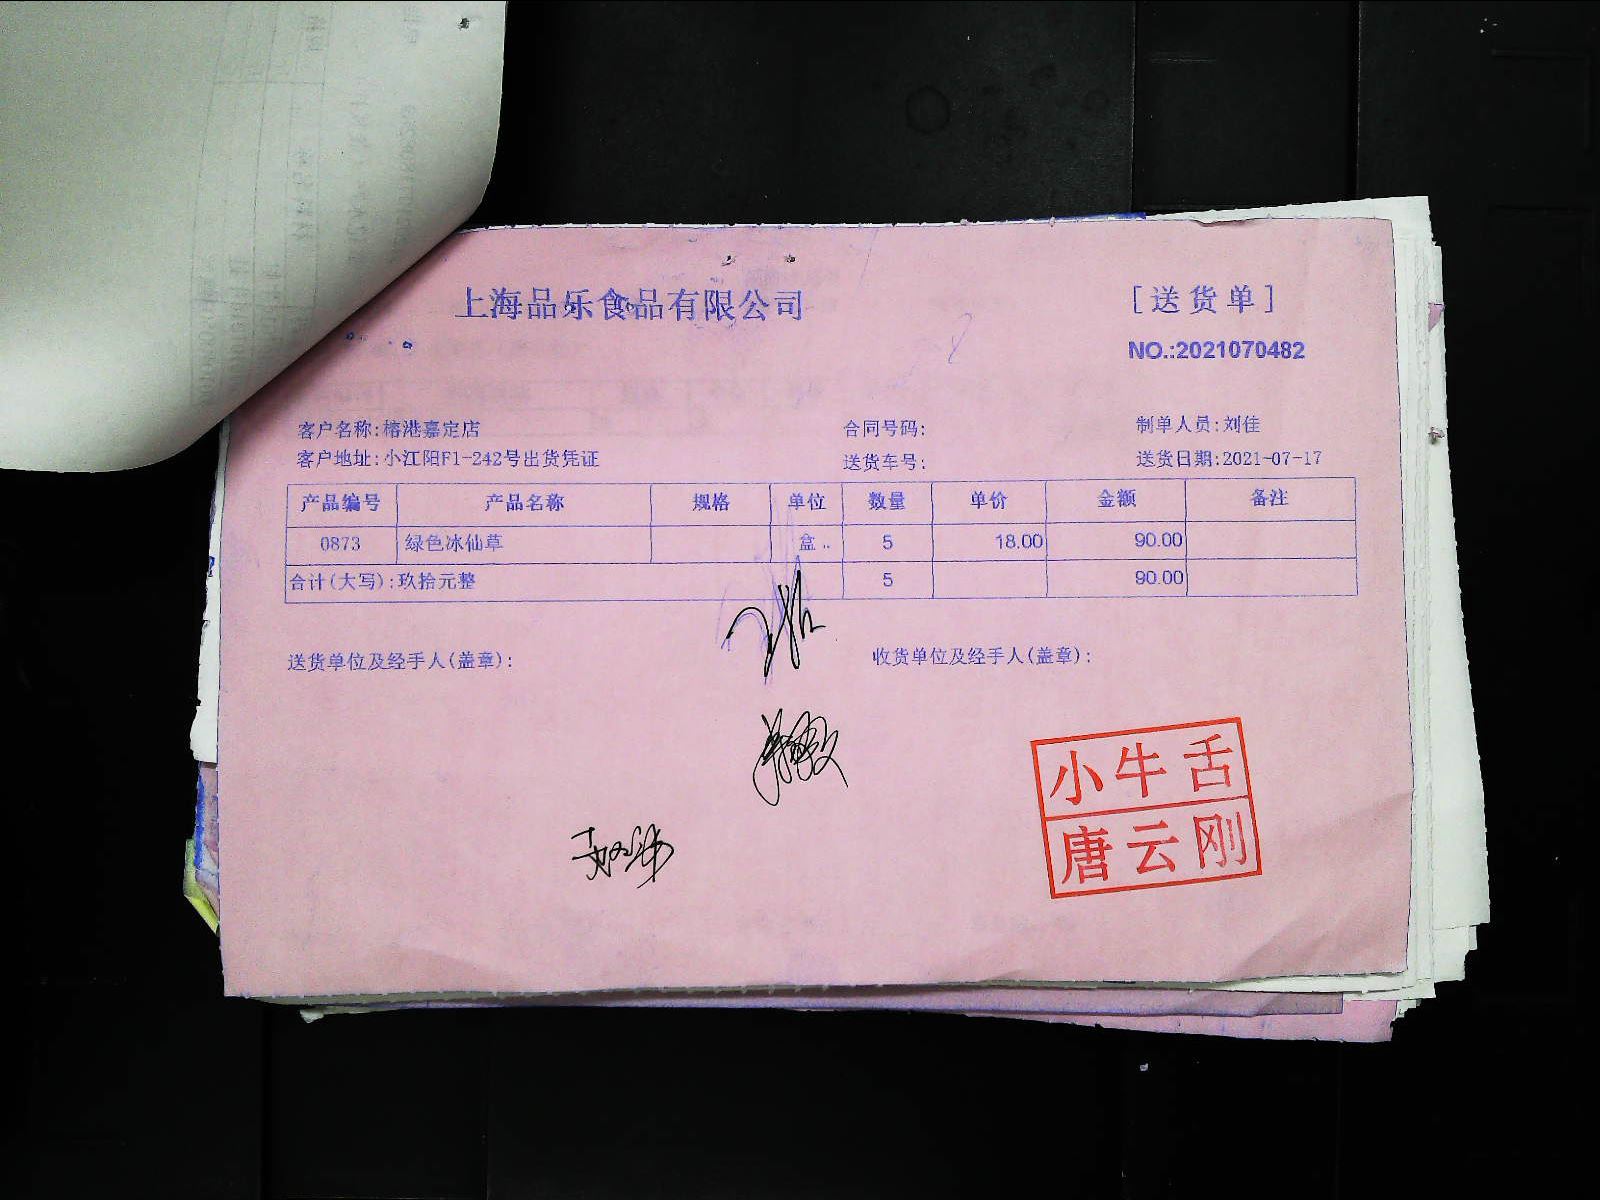 上海品乐食品有限公司
[送货单]
NO.:2021070482
客户名称:榕港嘉定店
合同号码:
制单人员:刘佳
客户地址:小江阳F1-242号出货凭证
送货车号:
送货日期:2021-07-17
产品编号 产品名称 规格 单位 数量 单价 金额 备注
0873 绿色冰仙草 盒 5 18.00 90.00
合计(大写):玖拾元整 5 90.00
送货单位及经手人(盖章):
收货单位及经手人(盖章):
小牛舌
唐云刚